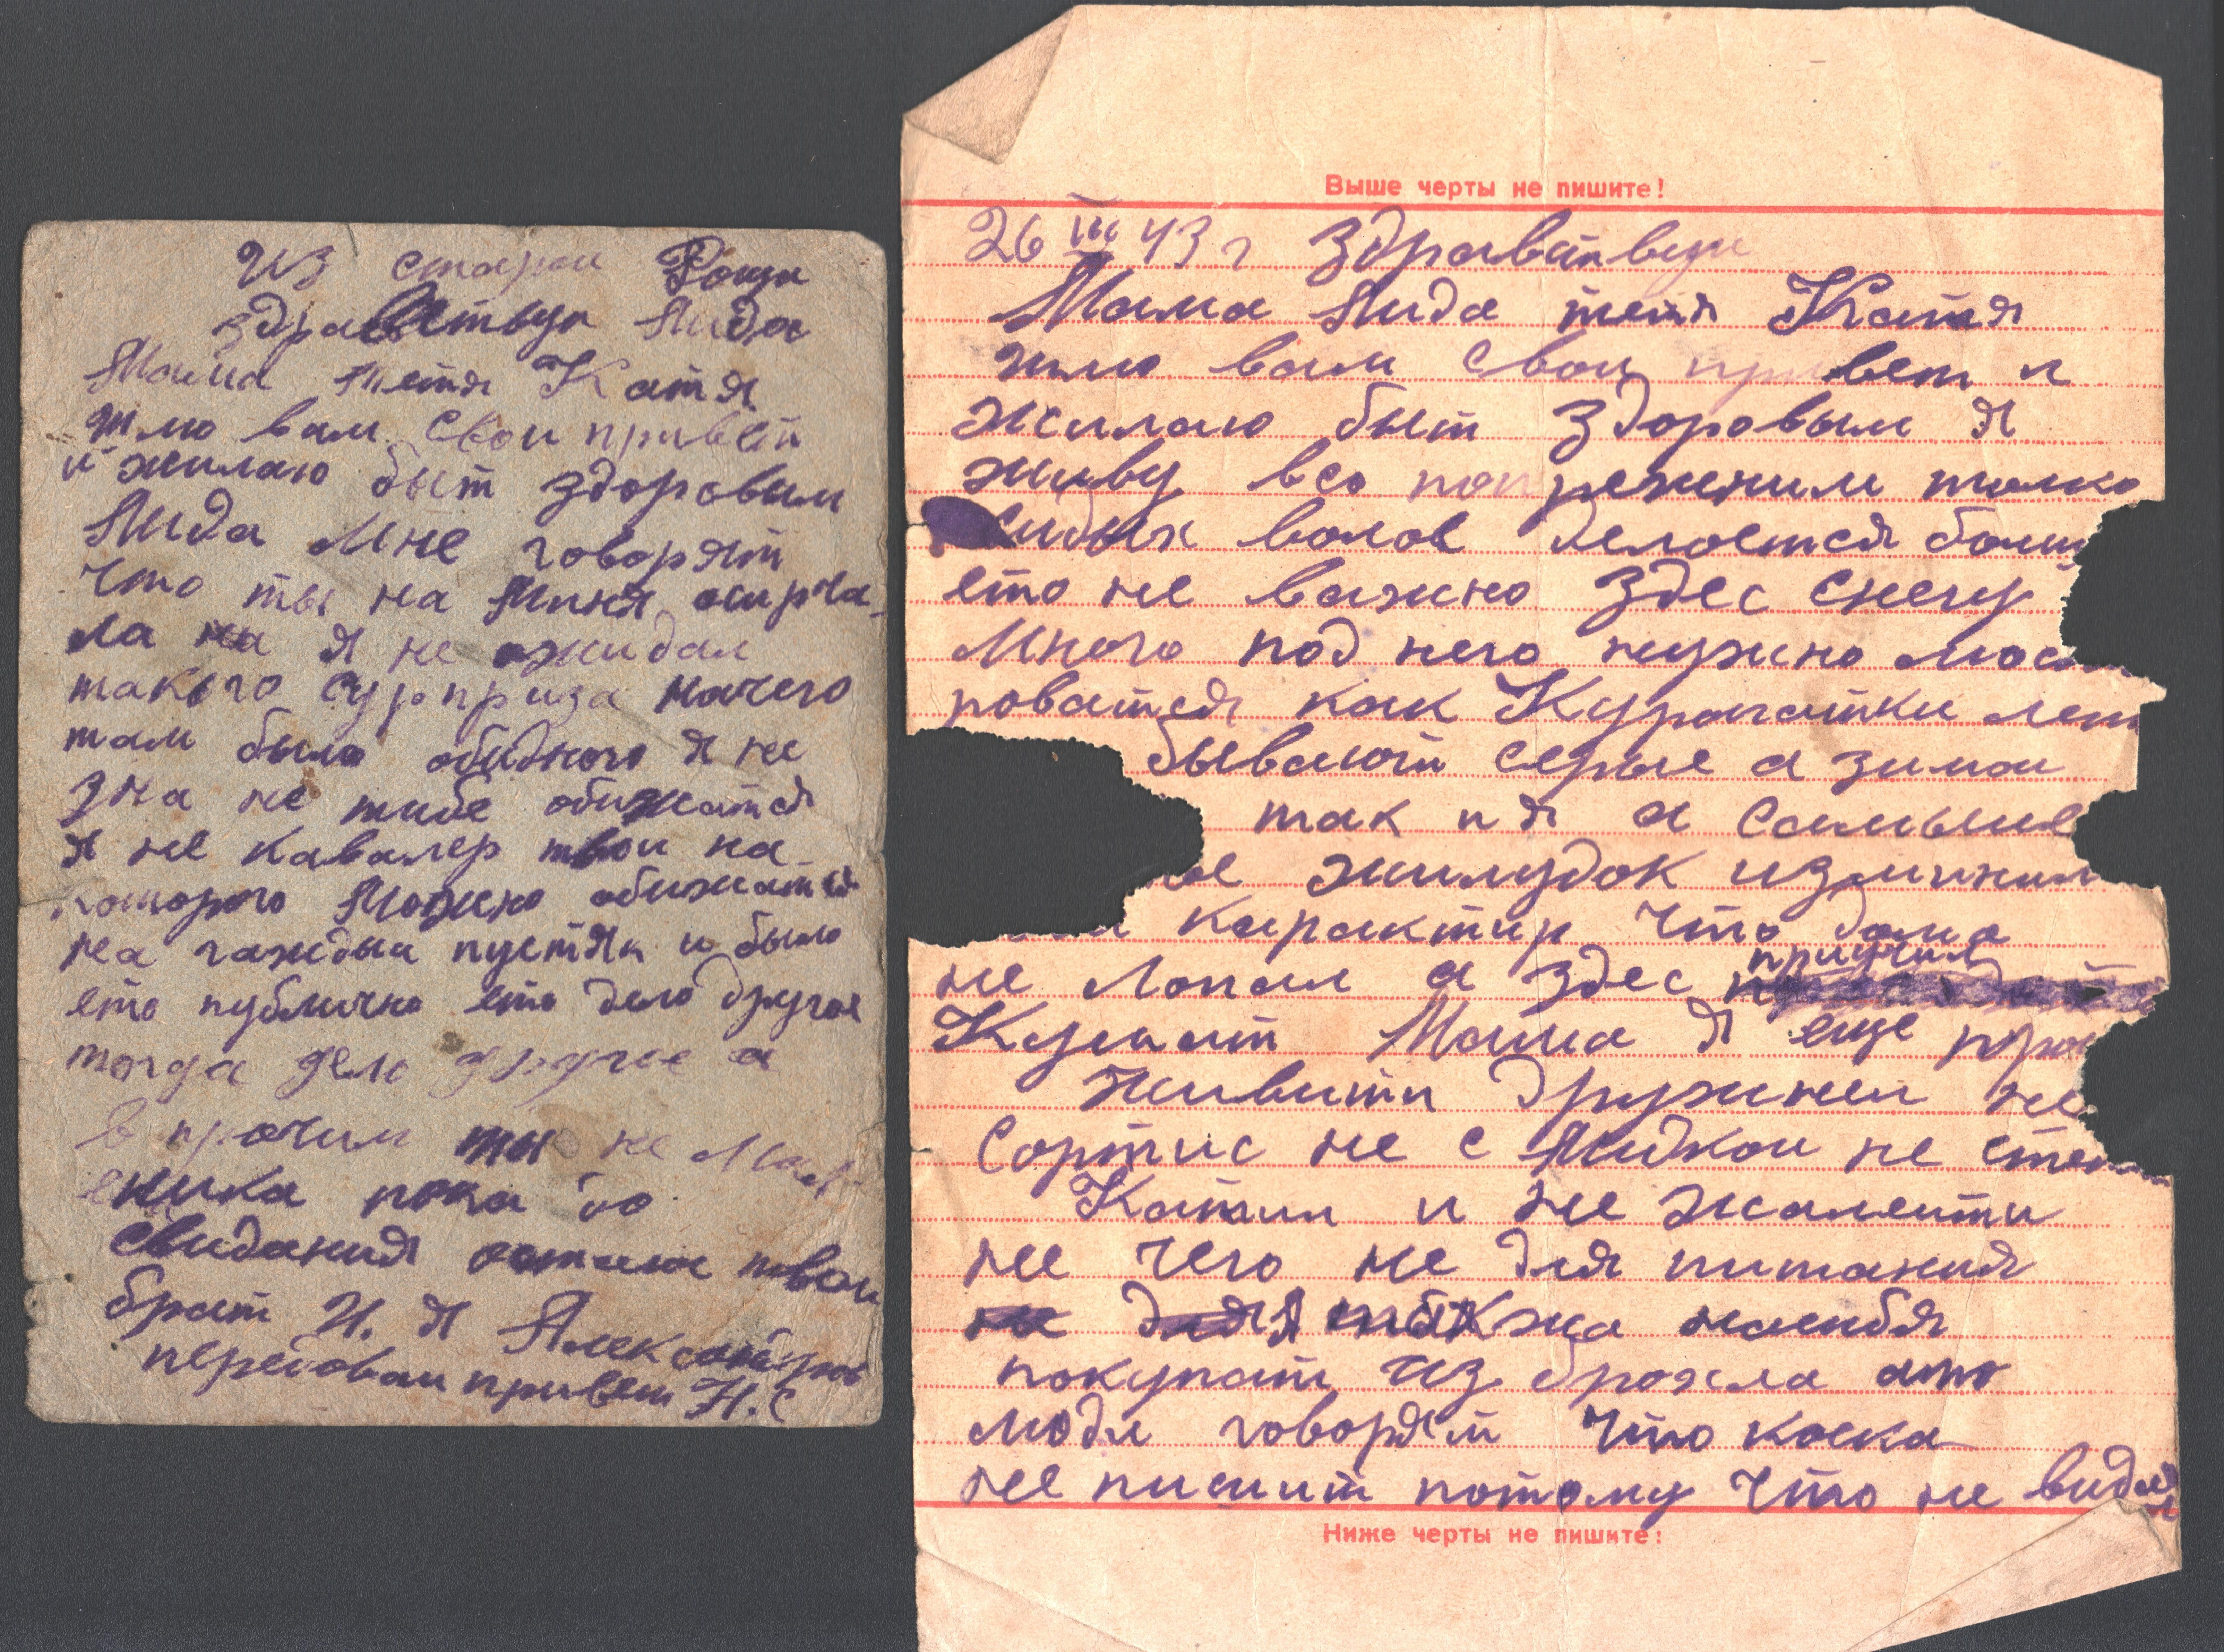 из старои Роща
здравствуи Лида
Мама тетя Катя
шлю вам свои привет
и жилаю быт здоровым
Лида Мне говорят
что ты на Миня осирча-
ла на я не ожидал
такого сурприза нечего
там было обидного я не
зна не тибе обижатся
я не кавалер твои на
которого Можно обижатся
на гаждыи пустяк и было
ето публично ето дело другое
тогда дело другое а
в прочим ты не Мал-
еника пока до
свидания остаюс твои
брат Н. Я Александров
передоваи привет Н.С
Выше черты не пишите!
26 III 43 г Здравствуи
Мама Лида тетя Катя
шлю вам свои привет и
жилаю быт здоровым я
живу всо попрежним толко
седых волов делоется болш
ето не важно здес снегу
Много под него нужно Маск
роватся как Курапатки лет
бывают серые а зимои
так и я а самыие
жилудок изминил
карактир что дома
не Лопал а здес приучил
Кушат Мама я еще про
живити дружнеи не
Сортис не с Лидкои не с тет
Катии и не жалеити
не чего не для питания
не для также наибя
покупат из брохла ато
люди говорят что коска
не пишит потому что не видел
Ниже черты не пишите!